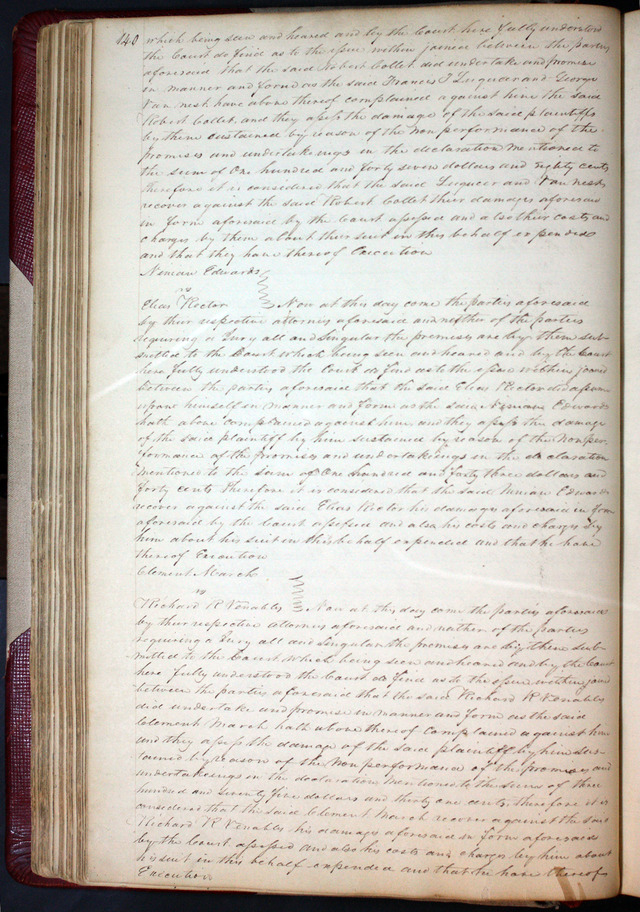 140 which being seen and heared and by the Court here fully understood
the Court do find as to the issue within joined between the parties
aforesaid that the said Robert Collet did undertake and promise
in manner and form as the said Frances J Luqueer and George
Van nest have above thereof complained against him the said
Robert Collet and they assess the damage of the said plaintiffs
by them sustained by reason of the non performance of the
promises and undertakeings in the declaration mentioned to
the sum of One hundred and forty seven dollars and eighty cents
therefore it is considered that the said Luqueer and Van nest
recover against the said Robert Collet their damages aforesaid
in form aforesaid by the Court assessed and also their costs and
charges by them about their suit in this behalf expended
and that they have thereof Execution
Ninian Edwards
vs
Elias Rector Now at this day come the parties aforesaid
by their respective attornies aforesaid and neither of the parties
requiring a Jury all and singular the premises are by them sub-
mitted to the Court which being seen and heared and by the Court
here fully understood the Court do find as to the issue within joined
between the parties aforesaid that the said Elias Rector did assume
upon himself in manner and form as the said Ninian Edwards
hath above complained against him and they assess the damage
of the said plaintiff by him sustained by reason of the non per-
formance of the promises and undertakeings in the declaration
mentioned to the sum of One hundred and forty three dollars and
forty cents therefore it is considered that the said Ninian Edwards
recover against the said Elias Rector his damages aforesaid in form
aforesaid by the Court assessed and also his costs and charges by
him about his suit in this behalf expended and that he have
thereof Execution
Clement March
vs
Richard R Venables Now at this day come the parties aforesaid
by their respective attornies aforesaid and neither of the parties
requireing a Jury all and singular the premises are by them sub-
mitted to the Court which being seen and heared and by the Court
here fully understood the Court do find as to the issue within joined
between the parties aforesaid that the said Richard R Venables
did undertake and promise in manner and form as the said
Clement March hath above thereof complained against him
and they assess the damage of the said plaintiff by him sus-
tained by reason of the non performance of the promises and
undertakeings in the declaration mentioned to the sum of three
hundred and seventy five dollars and thirty one cents therefore it is
considered that the said Clement March recover against the said
Richard R Venables his damages aforesaid in form aforesaid
by the Court assessed and also his costs and charges by him about
his suit in this behalf expended and that he have thereof
Execution